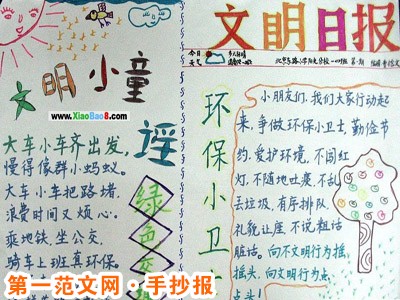 文明小童谣
www.XiaoBao8.com
大车小车齐出发,
慢得像群小蚂蚁。
大车小车把路堵,
浪费时间又烦心。
乘地铁,坐公交,
骑车上班真环保。
绿色交
文明日报
今日
天气
第一期
环保小卫士
小朋友们,我们大家行动起
来,争做环保小卫士,勤俭节
约,爱护环境,不闯红
灯,不随地吐痰、不乱
丢垃圾,有序排队,
礼貌让座,不说粗话
脏话。向不文明行为摇
摇头,向文明行为点
点头!
第一范文网·手抄报